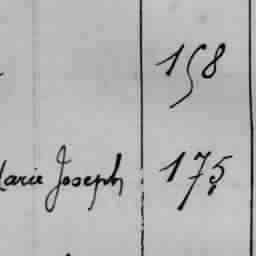 158
Marie Joseph 175